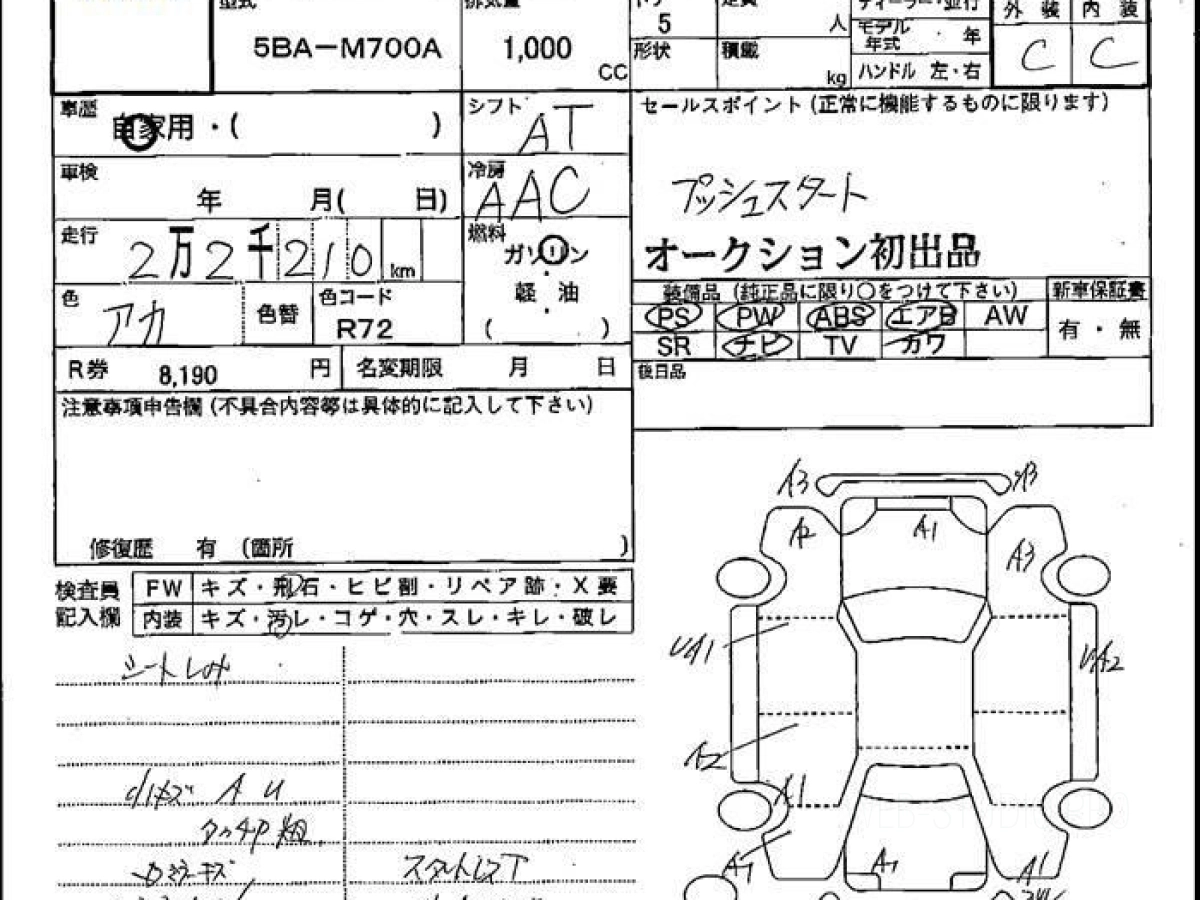 型式
5BA-M700A
排気量
1,000
CC
ドア
5
形状
定員
人
積載
kg
ディーラー・並行
モデル年式 ・ 年
ハンドル 左・右
外装 内装
C C
車歴
自家用・( )
シフト
AT
セールスポイント(正常に機能するものに限ります)
プッシュスタート
オークション初出品
車検
年 月( 日)
冷房
AAC
走行
2万2千210 km
燃料
ガソリン
軽油
( )
色
アカ
色替
色コード
R72
装備品 (純正品に限り○をつけて下さい)
新車保証書
PS PW ABS エアB AW
有・無
SR ナビ TV カワ
R券
8,190
円
名変期限 月 日
後日品
注意事項申告欄(不具合内容等は具体的に記入して下さい)
修復歴 有 (箇所 )
検査員
記入欄
FW キズ・飛石・ヒビ割・リペア跡・X要
内装 キズ・汚レ・コゲ・穴・スレ・キレ・破レ
シートしみ
小キズ A U
タッチP 粗
スタートレスT
A3
A2
A1
A3
UA1
UA2
A2
A1
A1
A1
A1